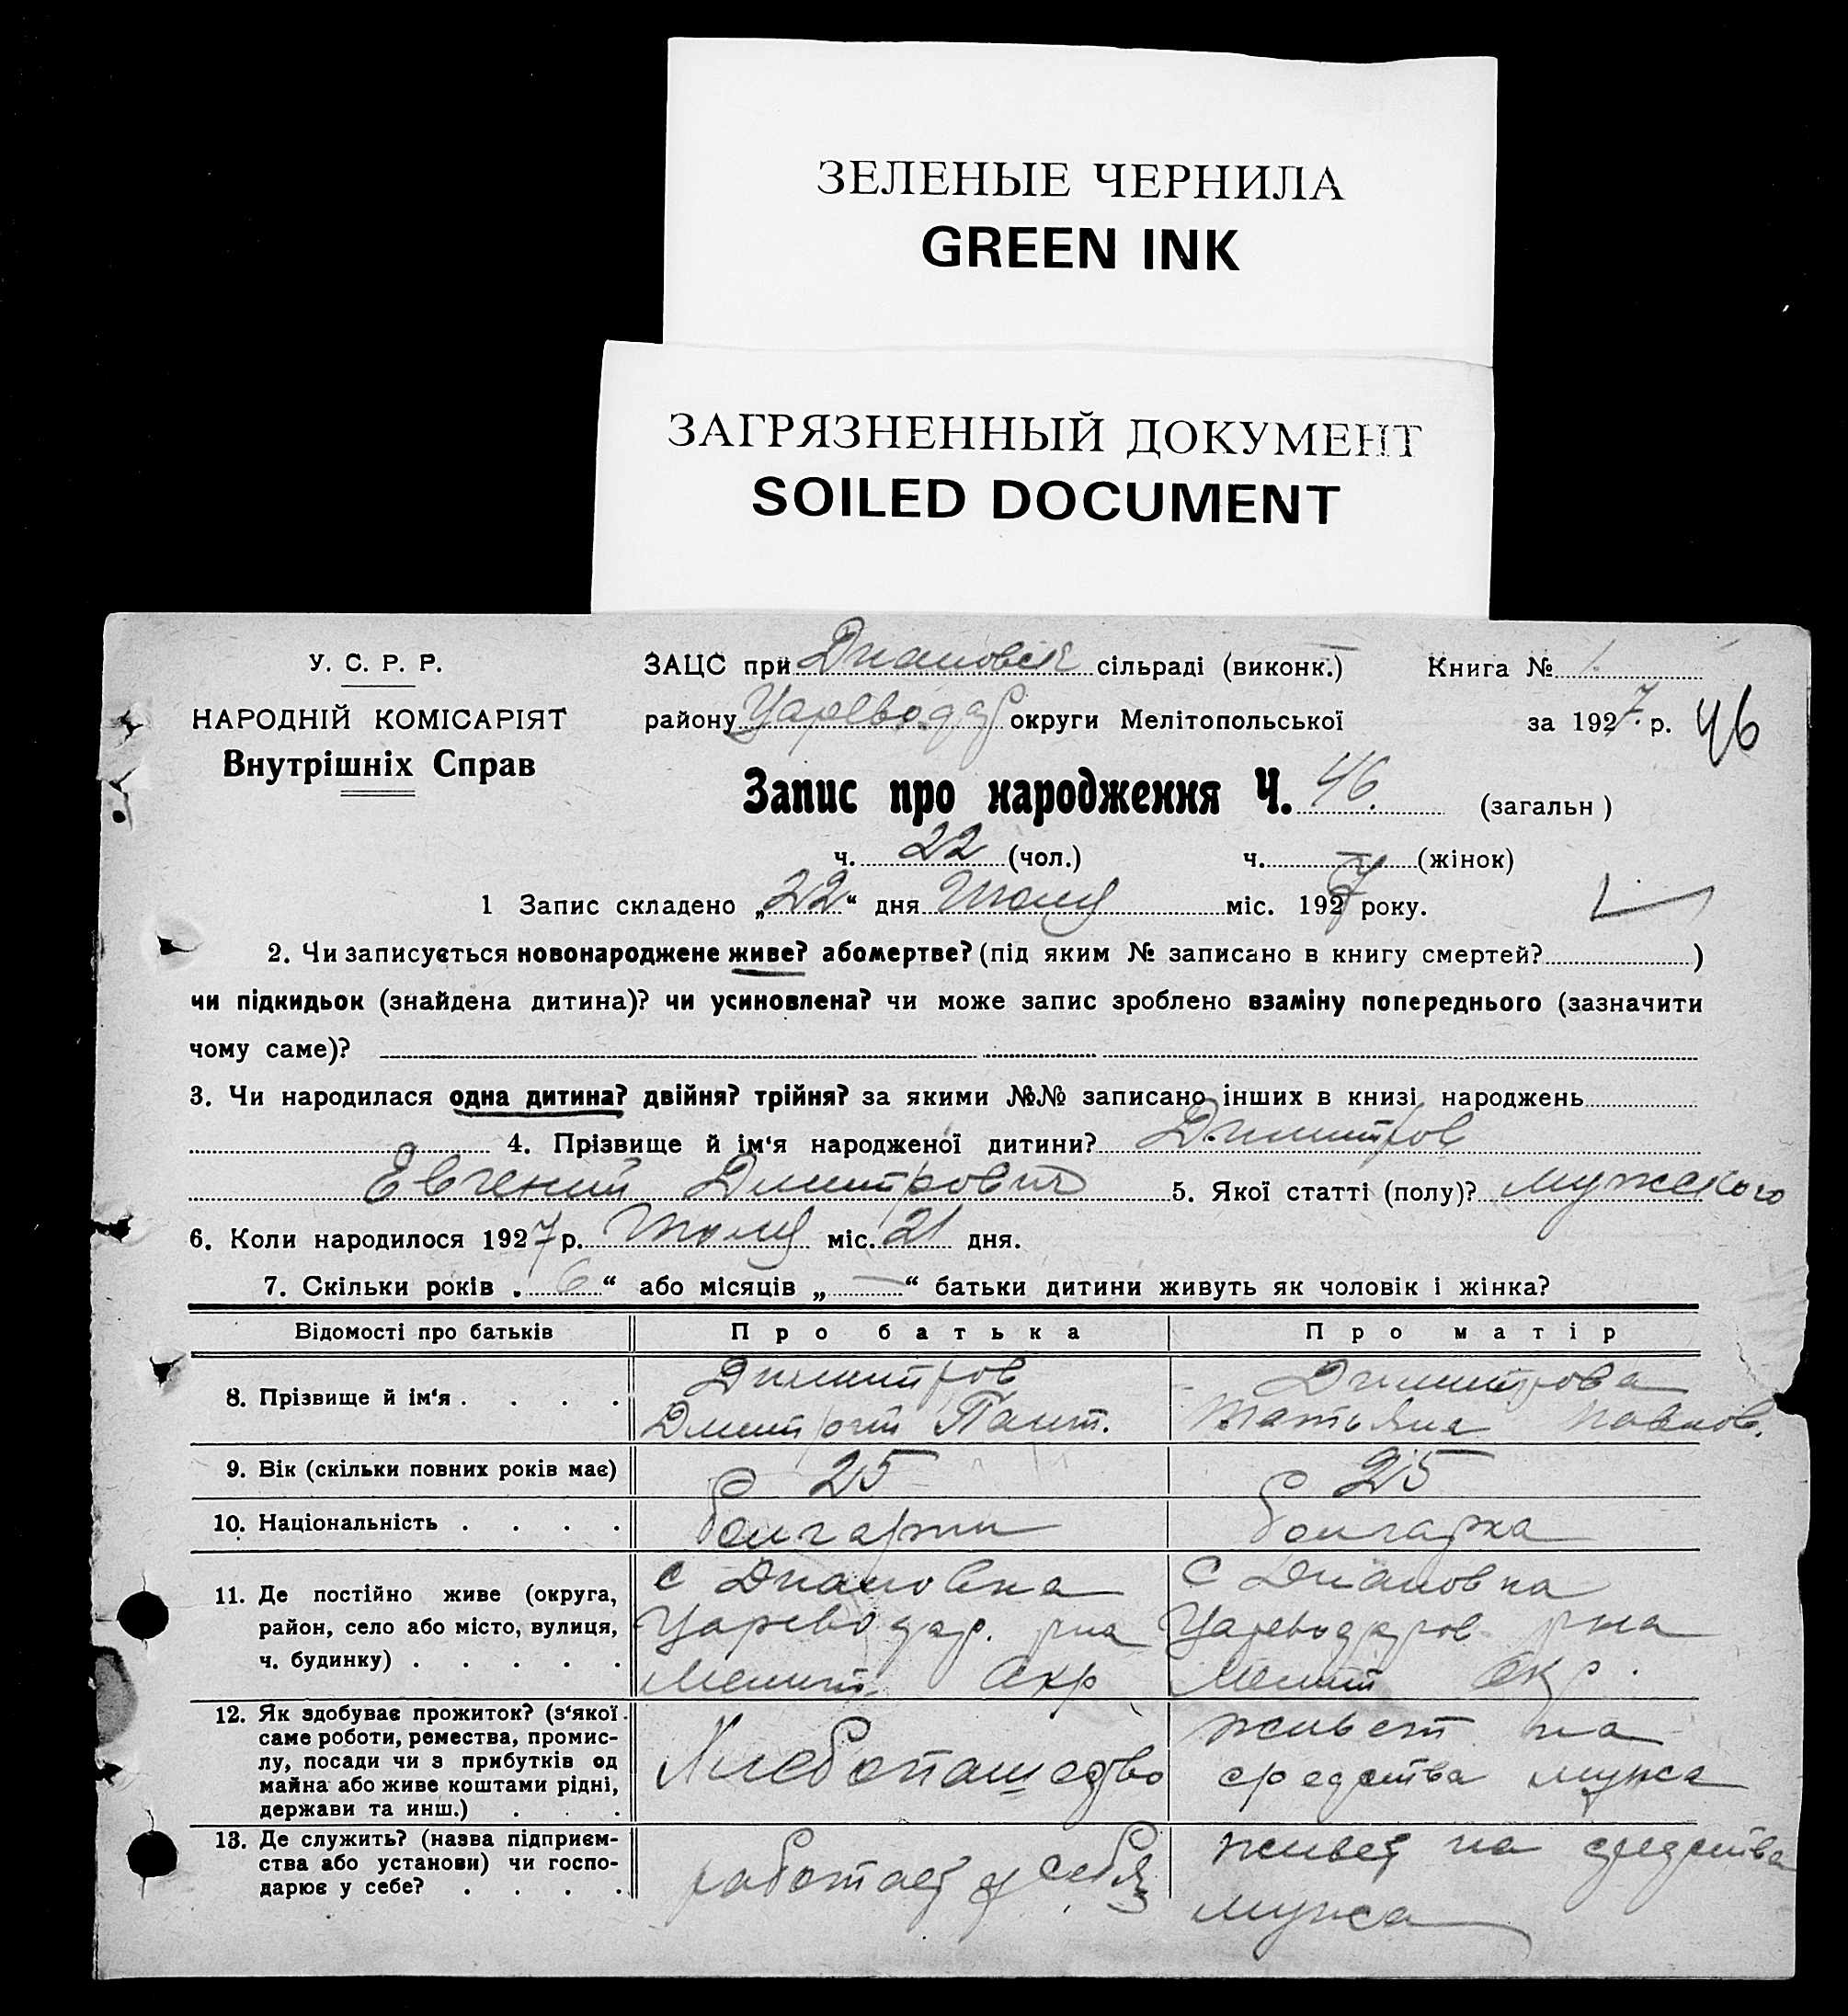 ЗЕЛЕНЫЕ ЧЕРНИЛА
GREEN INK
ЗАГРЯЗНЕННЫЙ ДОКУМЕНТ
SOILED DOCUMENT
У. С. Р. Р.
НАРОДНІЙ КОМІСАРІЯТ
Внутрішніх Справ
ЗАЦС при Диановск сільраді (виконк.) Книга № 1.
району Цареводар округи Мелітопольської за 1927 р. 46
Запис про народження Ч. 46. (загальн )
ч. 22 (чол.) ч. — (жінок)
1 Запис складено „22“ дня Июля міс. 1927 року.
2. Чи записується новонароджене живе? або мертве? (під яким № записано в книгу смертей? )
чи підкидьок (знайдена дитина)? чи усиновлена? чи може запис зроблено взаміну попереднього (зазначити
чому саме)?
3. Чи народилася одна дитина? двійня? трійня? за якими №№ записано інших в книзі народжень
4. Прізвище й ім‘я народженої дитини? Димитров
Евгений Дмитрович 5. Якої статті (полу)? мужского
6. Коли народилося 1927 р. Июля міс. 21 дня.
7. Скільки років „ 6 “ або місяців „ — “ батьки дитини живуть як чоловік і жінка?
Відомості про батьків Про батька Про матір
8. Прізвище й ім‘я . . . . Димитров Димитрова
Дмитрий Пант. Татьяна Павлов.
9. Вік (скільки повних років має) 25 25
10. Національність . . . . болгарин болгарка
11. Де постійно живе (округа, с Диановка с Диановка
район, село або місто, вулиця, Цареводар. рна Цареводаров рна
ч. будинку) . . . . . Мелит. Окр Мелит Окр.
12. Як здобуває прожиток? (з‘якої живет на
саме роботи, ремества, промис-
лу, посади чи з прибутків од Хлебопашедво средства мужа
майна або живе коштами рідні,
держави та инш.) . . .
13. Де служить? (назва підприєм- живет на средства
ства або установи) чи госпо- работает у себя
дарює у себе? . . . . мужа